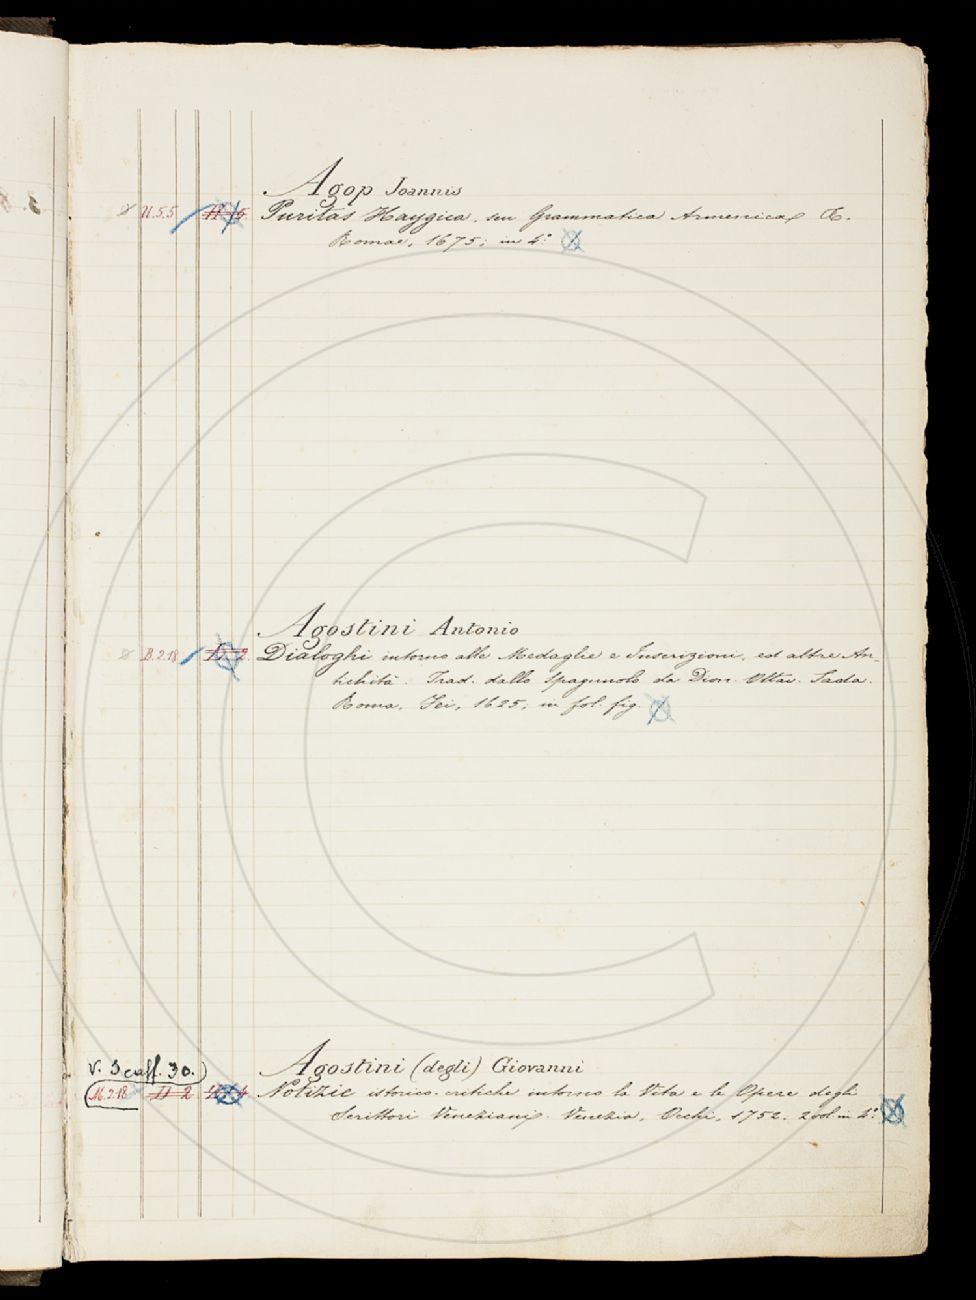 Agop Joannis
N.5.5 Puritas Haygica, seu Grammatica Armenica &.
Romae, 1675; in 4.°
Agostini Antonio
B.2.18 Dialoghi intorno alle Medaglie e Inscrizioni, ed altre An-
tichità. Trad. dallo Spagnuolo da Dion. Ottav. Sada.
Roma, Fei, 1625; in fol. fig.
V. Scaff. 30.
Agostini (degli) Giovanni
M.2.18 Notizie istorico-critiche intorno la Vita e le Opere degli
Scrittori Veneziani. Venezia, Occhi, 1752. 2 vol. in 4.°